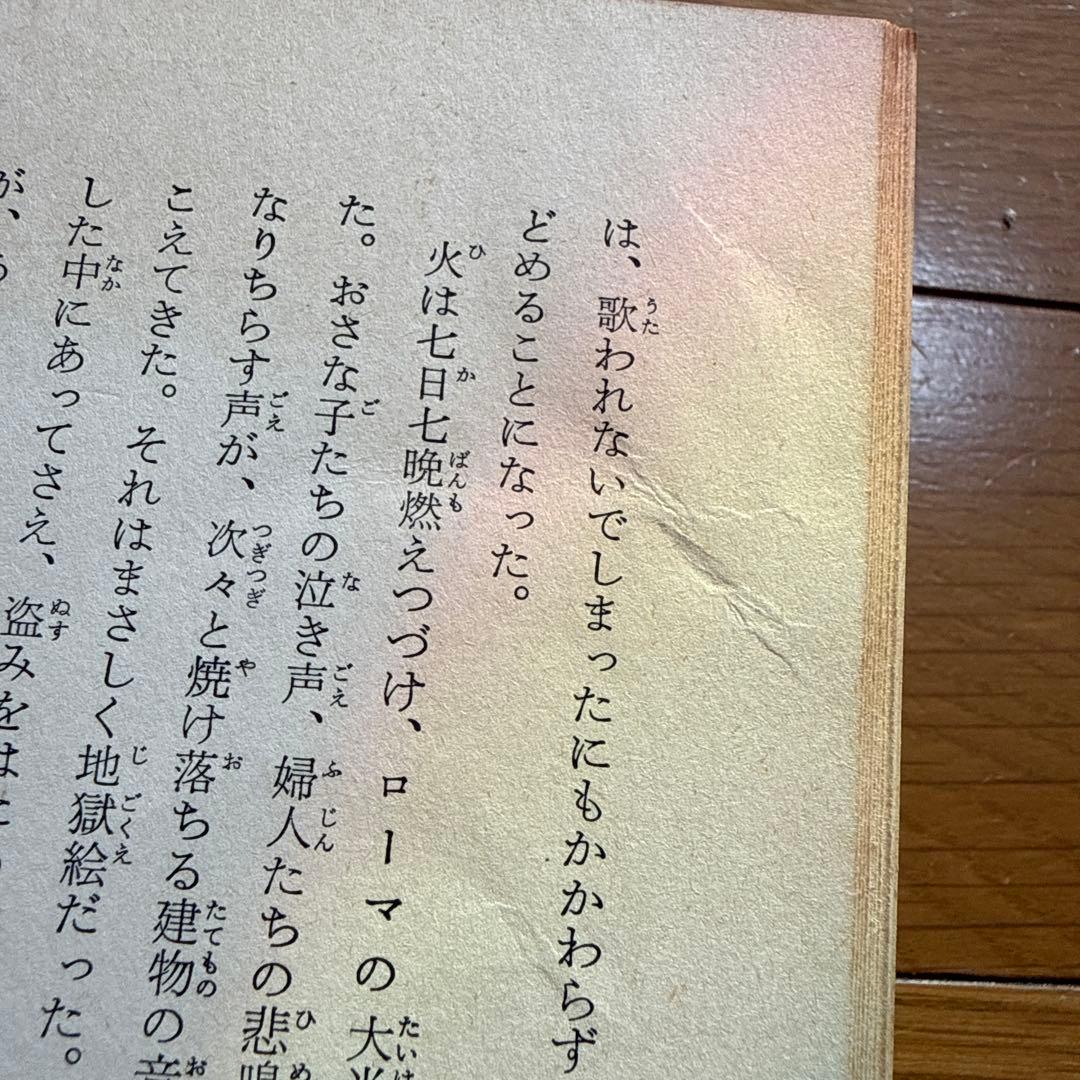 は、歌われないでしまったにもかかわらず
どめることになった。
火は七日七晩燃えつづけ、ローマの大半
た。おさな子たちの泣き声、婦人たちの悲鳴
なりちらす声が、次々と焼け落ちる建物の音
こえてきた。それはまさしく地獄絵だった。
した中にあってさえ、盗みをは
が、